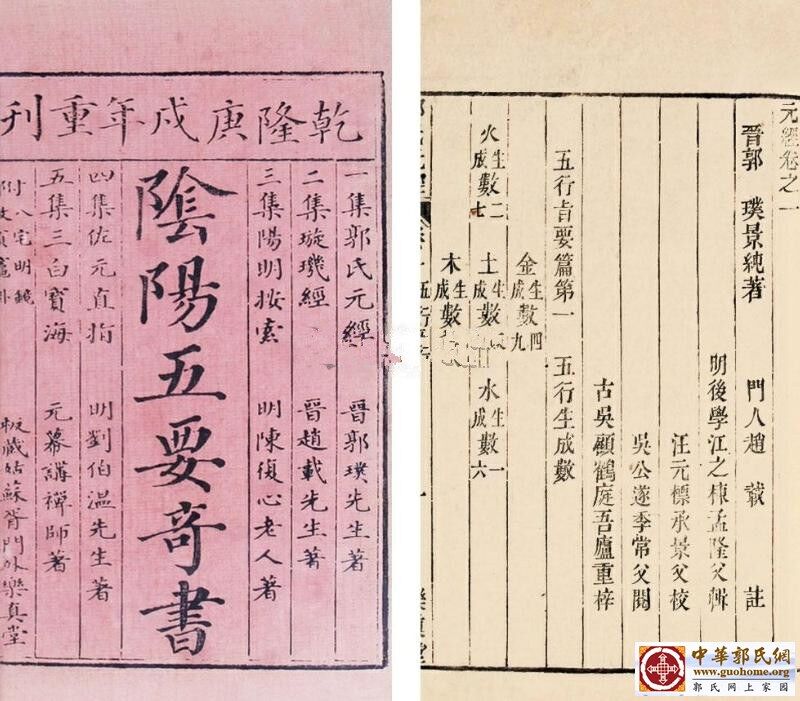 乾隆庚戌年重刊
一集郭氏元經 晉郭璞先生著
二集璇璣經 晉趙載先生著
三集陽明按索 明陳復心老人著
陰陽五要奇書
四集佐元直指 明劉伯溫先生著
五集三白寶海 元幕講禪師著
附八宅明鏡
板藏姑蘇胥門外樂真堂
元經卷之一
晉郭 璞景純著 門人趙 載 註
明後學江之棟孟隆父輯
汪元標承景父校
吳公遂季常父閱
古吳顧鶴庭吾廬重梓
五行旨要篇第一 五行生成數
金生數四成數九
水生數一成數六
火生數二成數七
土生數成數
木生數成數
中華郭氏網
www.guohome.org
郭氏网上家园